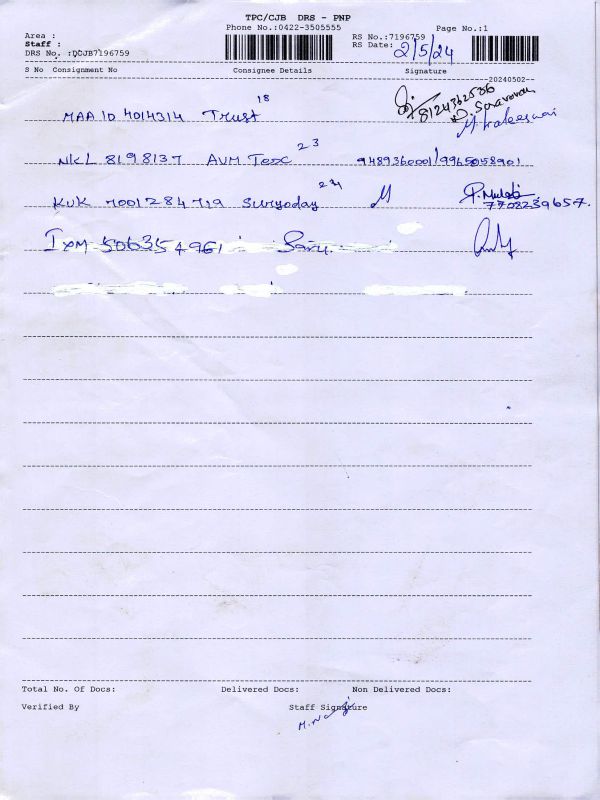 TPC/CJB DRS - PNP
Phone No.:0422-3505555
Page No.:1
Area :
RS No.:7196759
Staff :
RS Date: 2/5/24
DRS No. :DCJB7196759
S No Consignment No Consignee Details Signature
20240502
MAA 10 4014314 Trust 18 8124362536
NKL 8198137 AVM Tex 23 9489360001/9965058901
KUK 7001284719 Suryoday 24 7708239657.
IXM 506354961
Total No. Of Docs: Delivered Docs: Non Delivered Docs:
Verified By Staff Signature